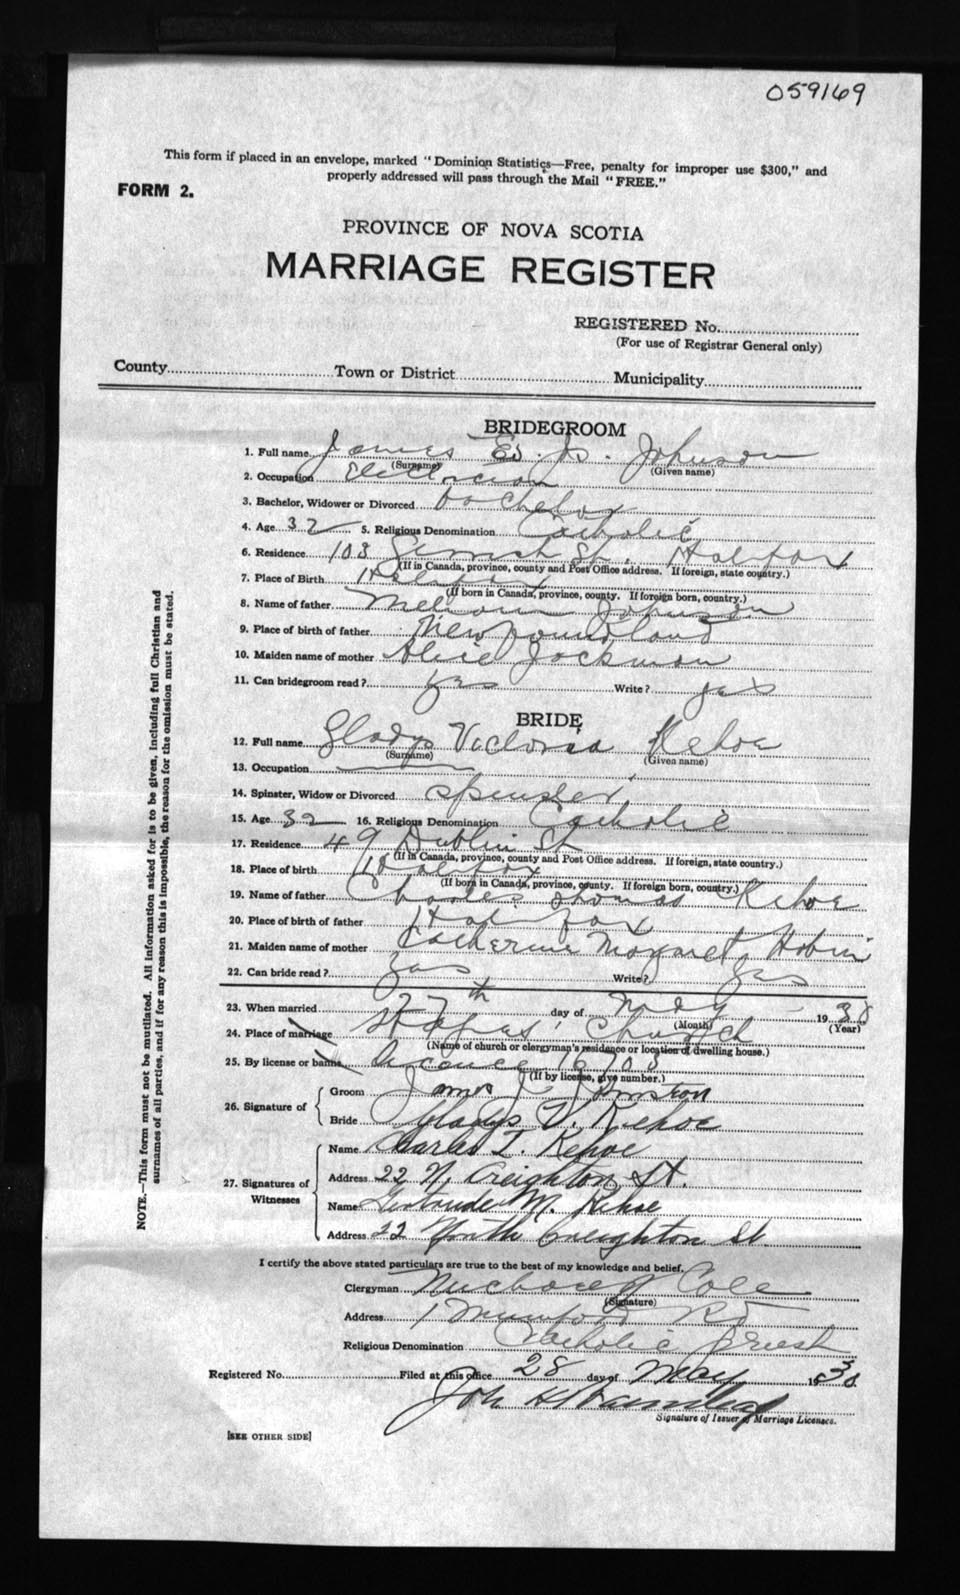 059169
This form if placed in an envelope, marked "Dominion Statistics—Free, penalty for improper use $300," and
properly addressed will pass through the Mail "FREE."
FORM 2.
PROVINCE OF NOVA SCOTIA
MARRIAGE REGISTER
REGISTERED No.
(For use of Registrar General only)
County Town or District Municipality
BRIDEGROOM
1. Full name James Ed. Johnson
(Surname) (Given name)
2. Occupation Electrician
3. Bachelor, Widower or Divorced bachelor
4. Age 32 5. Religious Denomination Catholic
6. Residence 103 St. Halifax
(If in Canada, province, county and Post Office address. If foreign, state country.)
7. Place of Birth Halifax
(If born in Canada, province, county. If foreign born, country.)
8. Name of father Johnson
9. Place of birth of father Newfoundland
10. Maiden name of mother Alice Jackman
11. Can bridegroom read? yes Write? yes
BRIDE
12. Full name Gladys Victoria Kehoe
(Surname) (Given name)
13. Occupation
14. Spinster, Widow or Divorced Spinster
15. Age 32 16. Religious Denomination Catholic
17. Residence 49 Dublin St
(If in Canada, province, county and Post Office address. If foreign, state country.)
18. Place of birth Halifax
(If born in Canada, province, county. If foreign born, country.)
19. Name of father Charles Thomas Kehoe
20. Place of birth of father Halifax
21. Maiden name of mother Catherine Margaret Hobin
22. Can bride read? yes Write? yes
23. When married 27th day of May 1938
(Month) (Year)
24. Place of marriage St Agnes' Church
(Name of church or clergyman's residence or location of dwelling house.)
25. By license or banns Licence 16703
(If by license, give number.)
26. Signature of Groom James J. Johnston
Bride Gladys V. Kehoe
27. Signatures of Witnesses Name Charles T. Kehoe
Address 22 N. Creighton St.
Name Gertrude M. Kehoe
Address 22 North Creighton St
I certify the above stated particulars are true to the best of my knowledge and belief.
Clergyman Cole
(Signature)
Address 1 Mumford Rd
Religious Denomination Catholic Priest
Registered No. Filed at this office 28 day of May 1938
Signature of Issuer of Marriage Licenses.
[SEE OTHER SIDE]
NOTE.—This form must not be mutilated. All information asked for is to be given, including full Christian and
surnames of all parties, and if for any reason this is impossible, the reason for the omission must be stated.